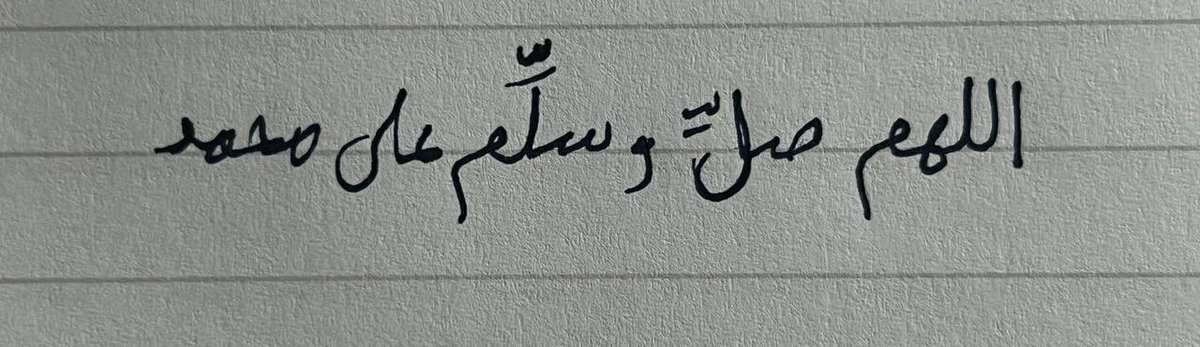 اللهم صلِّ وسلِّم على محمد